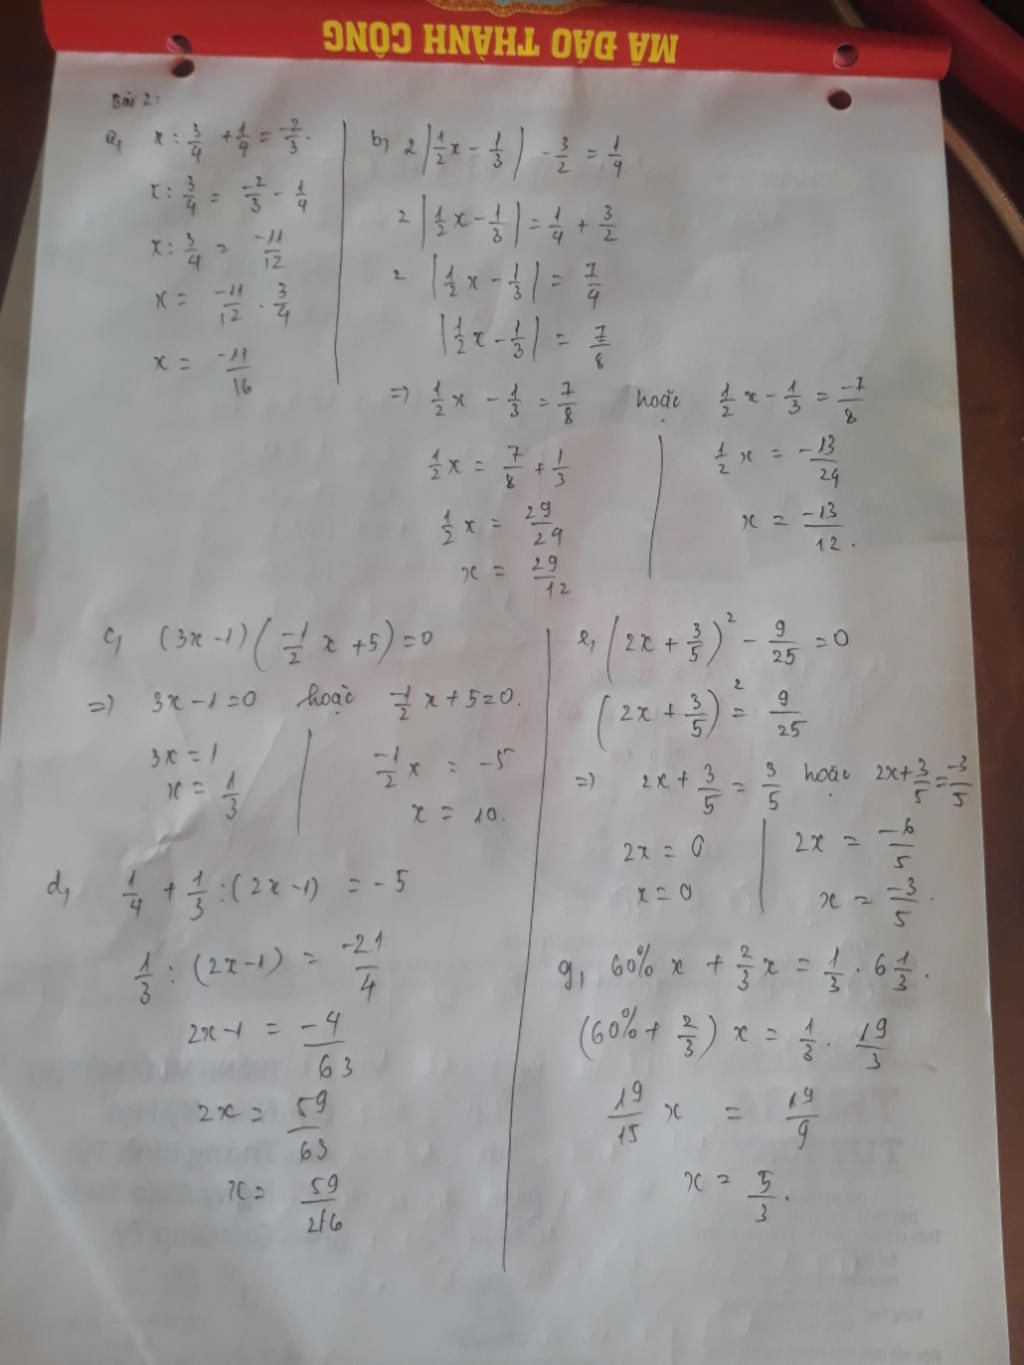 MÃ ĐÁO THÀNH CÔNG
Bài 2:
a, x : 3/4 + 1/4 = -2/3.
x : 3/4 = -2/3 - 1/4
x : 3/4 = -11/12
x = -11/12 . 3/4
x = -11/16
b, 2 |1/2 x - 1/3| - 3/2 = 1/4
2 |1/2 x - 1/3| = 1/4 + 3/2
2 |1/2 x - 1/3| = 7/4
|1/2 x - 1/3| = 7/8
=> 1/2 x - 1/3 = 7/8 hoặc 1/2 x - 1/3 = -7/8
1/2 x = 7/8 + 1/3
1/2 x = 29/24
x = 29/12
1/2 x = -13/24
x = -13/12.
c, (3x-1)(-1/2 x + 5) = 0
=> 3x - 1 = 0 hoặc -1/2 x + 5 = 0.
3x = 1
x = 1/3
-1/2 x = -5
x = 10.
d, 1/4 + 1/3 : (2x-1) = -5
1/3 : (2x-1) = -21/4
2x-1 = -4/63
2x = 59/63
x = 59/216
e, (2x + 3/5)^2 - 9/25 = 0
(2x + 3/5)^2 = 9/25
=> 2x + 3/5 = 3/5 hoặc 2x + 3/5 = -3/5
2x = 0
x = 0
2x = -6/5
x = -3/5.
g, 60% x + 2/3 x = 1/3 . 6 1/3.
(60% + 2/3) x = 1/3 . 19/3
19/15 x = 19/9
x = 5/3.